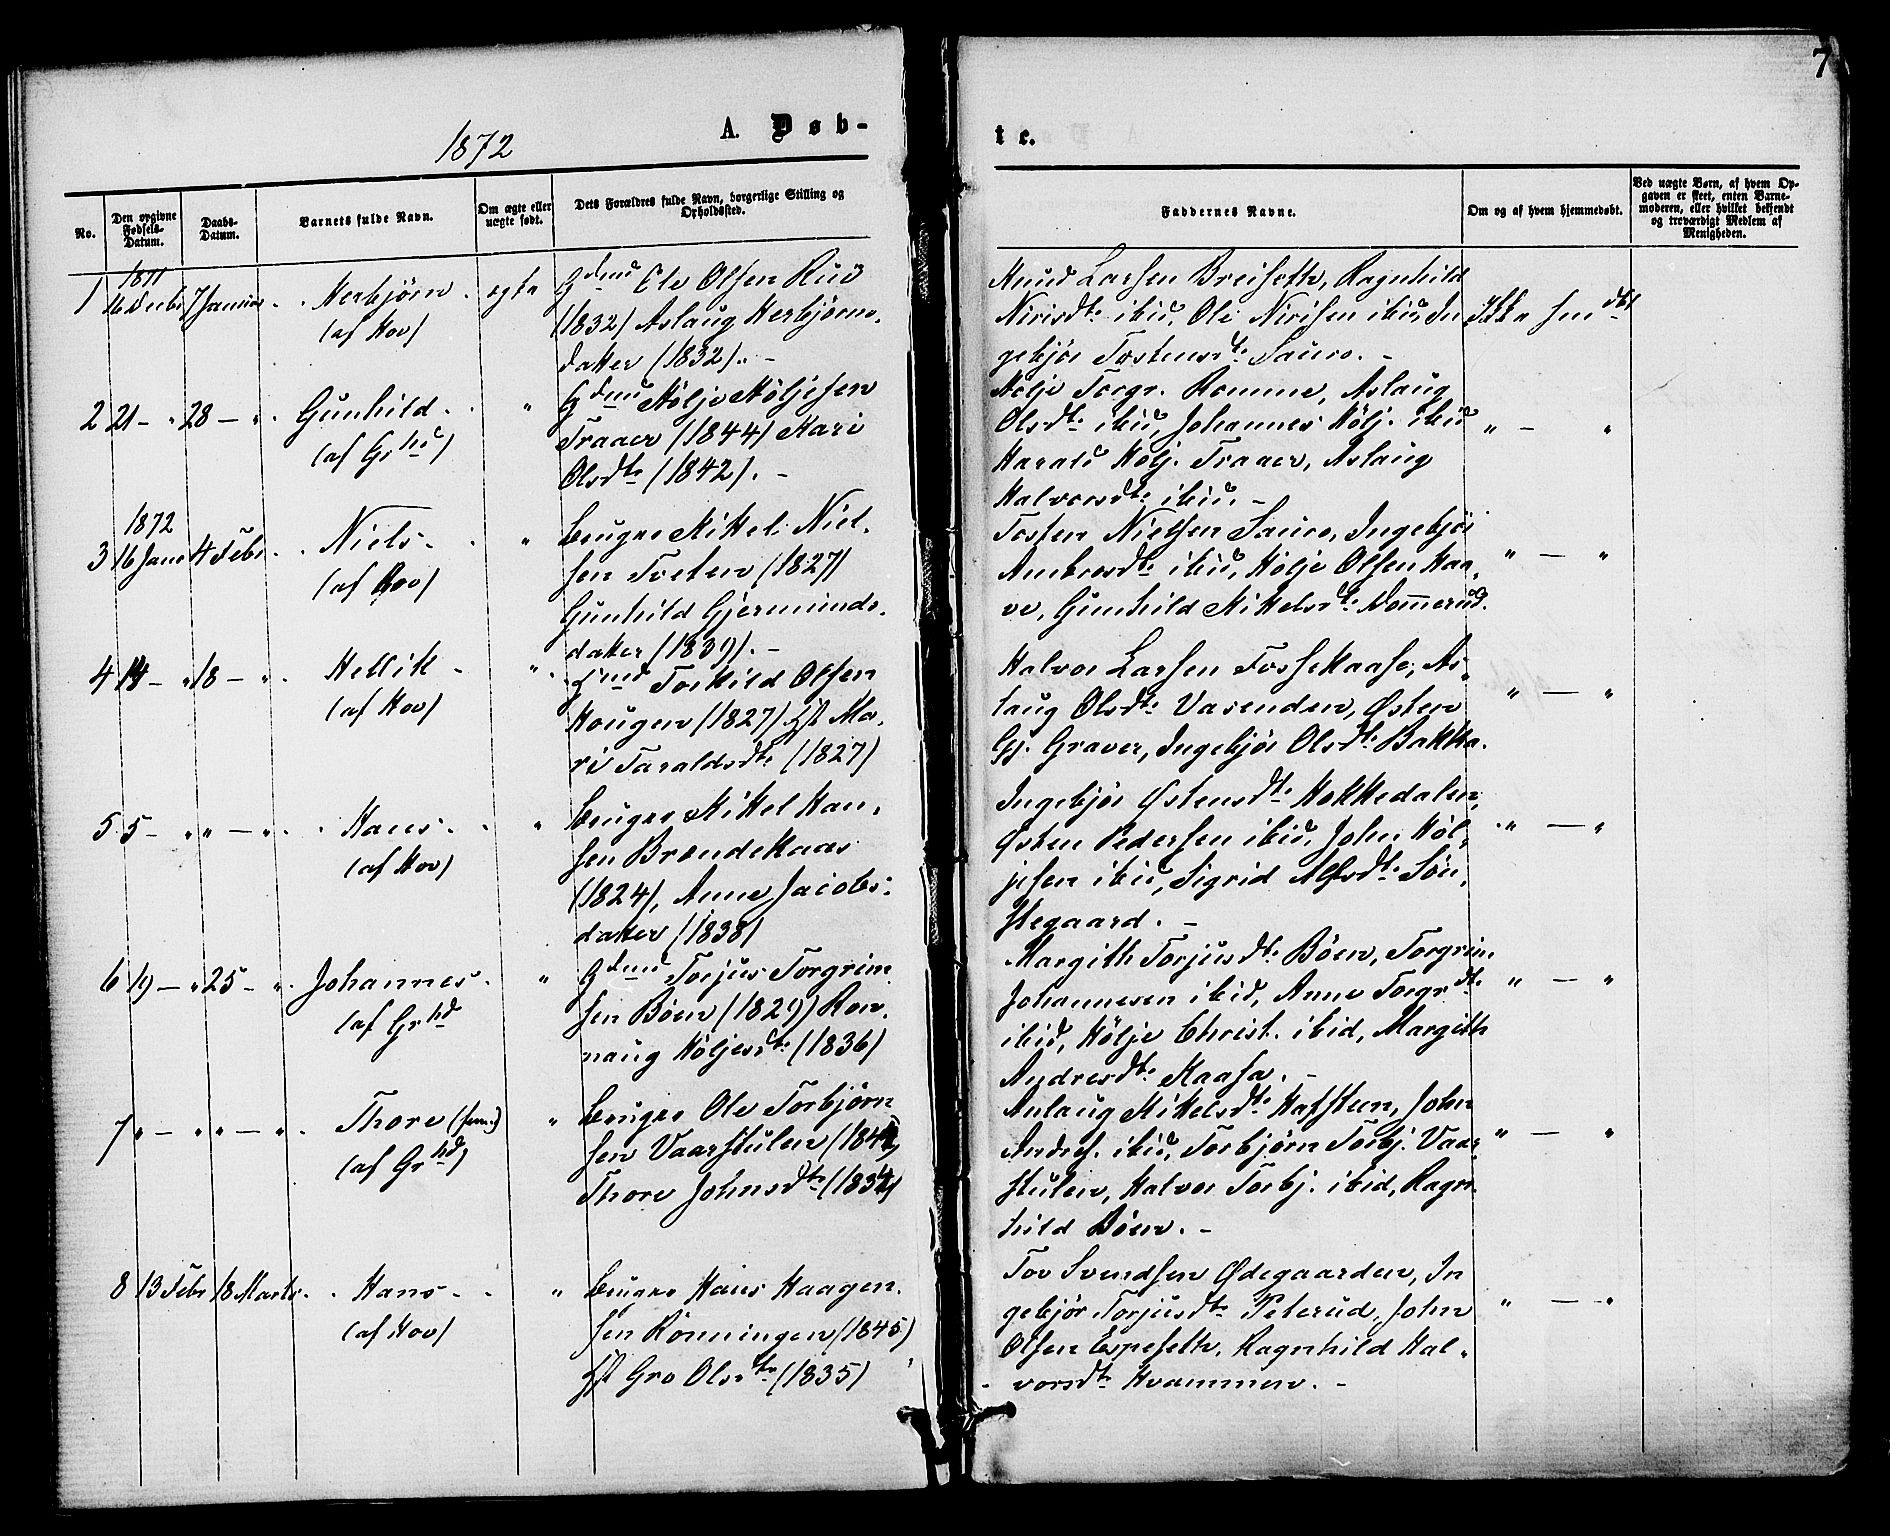 7
1872
A. Døb-
te.
No.
Den opgivne Fødsels-Datum.
Daabs-Datum.
Barnets fulde Navn.
Om ægte eller uægte født.
Dets Forældres fulde Navn, borgerlige Stilling og Opholdssted.
Faddernes Navne.
Om og af hvem hjemmedøbt.
Ved uægte Børn, af hvem Opgaven er skeet, enten Barnemoderen, eller hvilket bekjendt og troværdigt Medlem af Menigheden.
1871
1 16 Decbr 7 Januar Herbjørn egte
(af Hov)
Gdmd Ole Olsen Rud
(1832) Aslaug Herbjørns-
datter (1832). -
Knud Larsen Breiseth, Ragnhild
Nirisdtr ibid, Ole Nirisen ibid, In
gebjør Tostensdtr Saure. -
Ikke hmdbt
2 21 - " 28 - " Gunhild "
(af Grhd)
Gdmd Kølje Køljesen
Traaer (1844) Kari
Olsdtr (1842). -
Kølje Torgr. Romme, Aslaug
Olsdtr ibid, Johannes Kølj. ibid
Harald Kølj. Traaer, Aslaug
Halvorsdtr ibid. -
" - "
1872
3 16 Janr 4 Febr Niels "
(af Hov)
Bruger Mikel Niel-
sen Tveten (1827)
Gunhild Gjermunds-
datter (1839). -
Tosten Nielsen Saure, Ingebjør
Ambrosdtr ibid, Kølje Olsen Haa-
ve, Gunhild Mikelsdtr Nommerud.
" - "
4 14 - " 18 - " Kittil "
(af Hov)
Gmd Torkild Olsen
Hougen (1827) Hst Ma-
ri Taraldsdtr (1827)
Halvor Larsen Fossekaase, As-
laug Olsdtr Vasenden, Østen
Gj. Graver, Ingebjør Olsdtr Bakka.
" - "
5 5 - " " - " Hans "
(af Hov)
Bruger Mikel Han-
sen Brændekaas
(1824), Anne Jacobs-
datter (1838)
Ingebjør Østensdtr Kokkedalen,
Østen Pedersen ibid, John Køl-
jesen ibid, Sigrid Alfsdtr Søn-
stegaard. -
" - "
6 19 - " 25 - " Johannes "
(af Grhd
Gdmd Torjus Torgrim
sen Bøen (1829) Ron-
naug Køljesdtr (1836)
Margith Torjusdtr Bøen, Torgrim
Johannesen ibid, Anne Torgrdtr
ibid, Kølje Christ. ibid, Margith
Andresdtr Kaasa. -
" - "
7 " - " " - " Thore (fem.) "
(af Grhd)
Bruger Ole Torbjørn
sen Vaarstulen
Thore Johnsdtr (1834)
Anlaug Mikelsdtr Hafsteen, John
Andres. ibid, Torbjørn Torbj. Vaar-
stulen, Halvor Torbj. ibid, Ragn-
hild Bøen. -
" - "
8 13 Febr 18 Marts Hans "
(af Hov)
Bruger Hans Haagen-
sen Rønningen (1845)
Hst Gro Olsdtr (1835)
Tov Svendsen Ødegaarden, In
gebjør Torjusdtr Peterud, John
Olsen Espeseth, Ragnhild Hal-
vorsdtr Kvammen. -
" - "